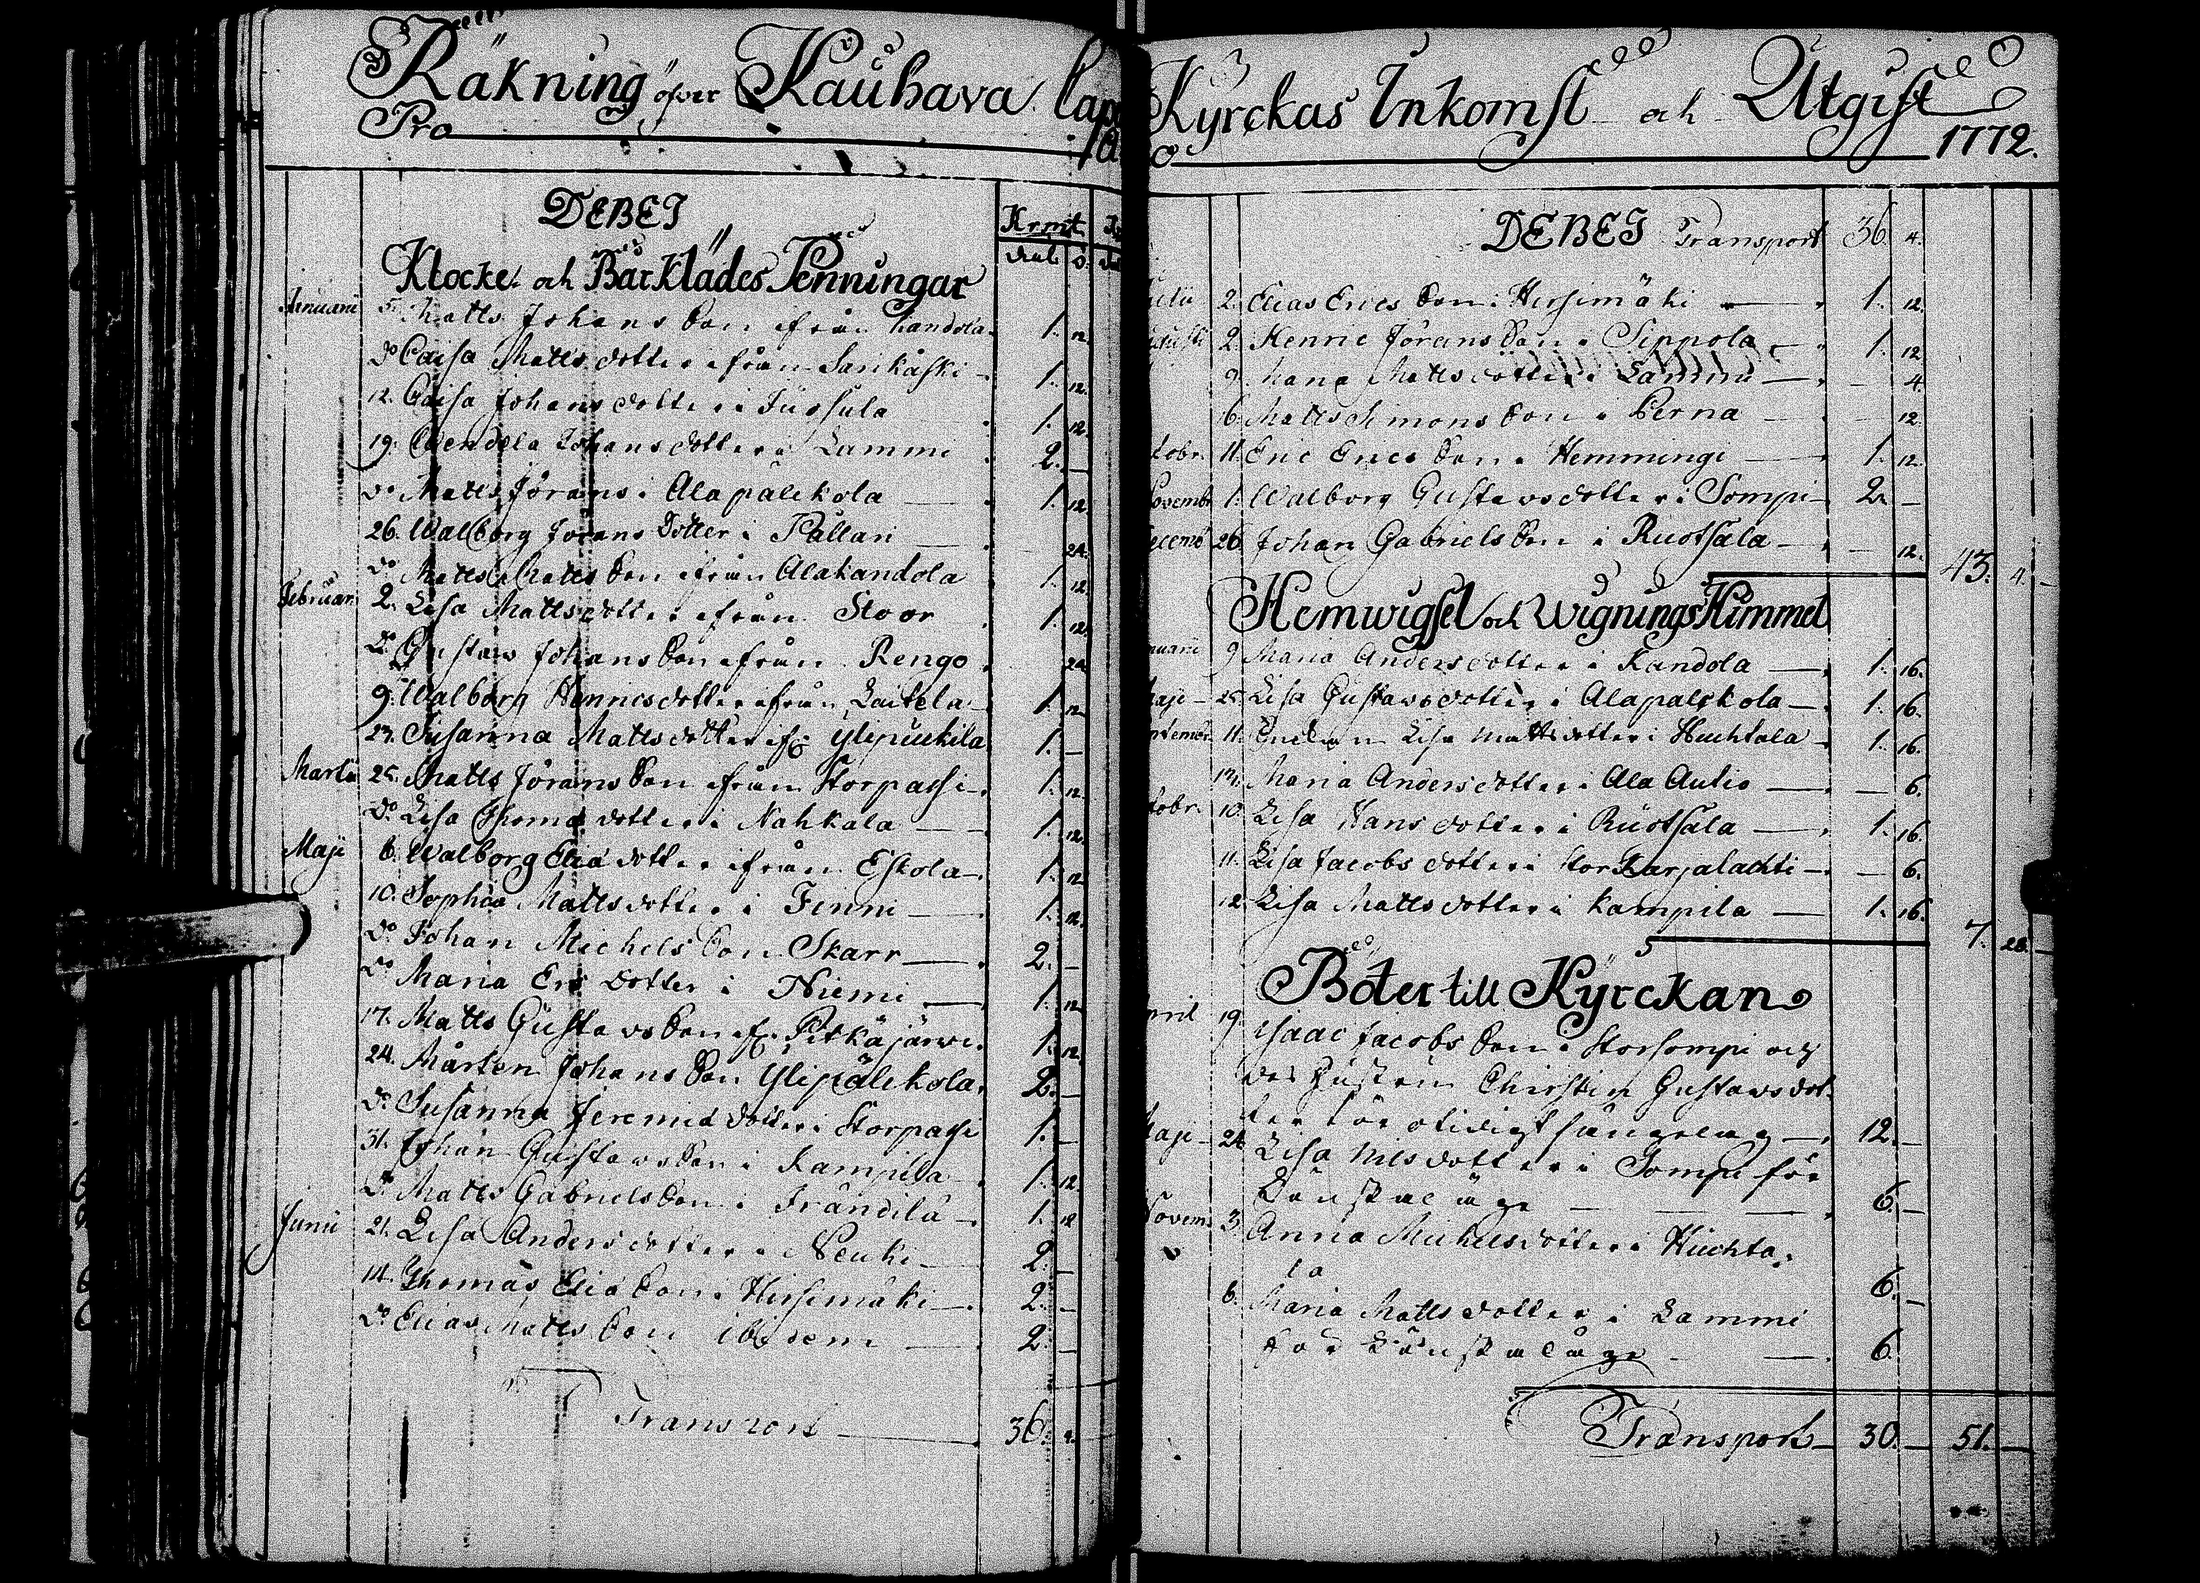 Räkning öfver Kauhava Cap
Pro
DEBET
Krmt
dal
Klocke och Bårklädes Penningar
Januarii 5. Matts Johans Son ifrån Kandola 1. 12.
Do Caisa Matts dotter ifrån Sarikåski 1. 12.
12. Caisa Johans dotter i Jussula 1. 12.
19. Wendela Johans dotter i Lammi 2. —
Do Matts Jörans i Alapalckola 1. 12.
26. Walborg Jorans Dotter i Pållari — 24.
Do Matts Matts Son ifrån Alakandola 1. 12.
Februar. 2. Lisa Matts dotter ifrån Stoor 1. 12.
Do Gustaw Johans Son ifrån Rengo 24.
9. Walborg Henricsdotter ifrån Laitela 1. 12.
23. Susanna Matts dotter ifr. Ylipuckila 1. —
Martii 25. Matts Jörans Son ifrån Storpassi 1. 12.
Do Lisa Thomæ dotter i Nahkala 1. 12.
Maji 6. Walborg Eliæ dotter ifrån Eskola 1. 12.
10. Sophia Matts dotter i Finni 1. 12.
Do Johan Michels Son Skarr 2. —
Do Maria Ers dotter i Niemi 1. 12.
17. Matts Gustavs Son ifr. Pitkäjärwi 1. 12.
24. Mårten Johans Son Ylipålckola 2. —
Do Susanna Jeremiæ dotter i Storpassi 1. —
31. Johan Gustavs Son i Kampila 1. 12.
Do Matts Gabriels Son i Frändilä 1. 12.
Junii 21. Lisa Anders dotter i Neuki 2. —
14. Thomas Eliæ Son i Hirsimäki 2. —
Do Elias Matts Son ibidem 2. —
Transport 36. 4.
Kyrckas Inkomst och Utgift
o 1772.
DEBET Transport 36. 4.
2. Elias Erics Son i Hirsimäki 1. 12.
2. Henric Jörans Son i Sippola 1. 12.
9. Maria Matts dotter i Lammi — 4.
6. Matts Simons Son i Perna — 12.
tobr. 11. Eric Erics Son i Hemmingi 1. 12.
Novembr 1. Walborg Gustavsdotter i Sompi 2. —
ecemb 26. Johan Gabriels Son i Ruotsala — 12.
43. 4. —
Hemwigsel och WigningsHimmel
nuarii 9. Maria Anders dotter i Kandola 1. 16.
Maji 25. Lisa Gustavs dotter i Alapalckola 1. 16.
ptembr 11. Enckan Lisa Mattsdotter i Huchtala 1. 16.
Maria Anders dotter i Ala Aulio — 6.
tobr. 10. Lisa Hans dotter i Ruotsala 1. 16.
11. Lisa Jacobs dotter i Stor Karjalachti — 6.
12. Lisa Matts dotter i Kampila 1. 16.
7. 28. —
Böter till Kyrckan
pril 19. Isaac Jacobs Son i Storsompi och
des Hustru Chirstin Gustavs dot-
ter för otidigt sängelag 12. —
Maji 24. Lisa Nils dotter i Sompi för
Lönskaläge 6. —
Novem. 3. Anna Michelsdotter i Huchta-
la 6. —
6. Maria Matts dotter i Lammi
för Lönskaläge 6.
Transport 30. — 51. —